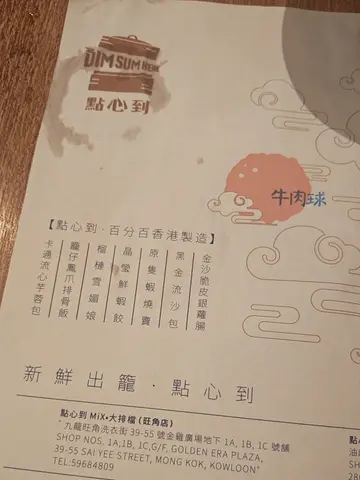 DIM SUM HERE
點心到
牛肉球
【點心到·百分百香港製造】
金沙脆皮銀蘿腸
黑金流沙包
原隻蝦燒賣
晶瑩鮮蝦餃
榴槤雪媚娘
籠仔鳳爪排骨飯
卡通流心芋蓉包
新鮮出籠·點心到
點心到 MiX•大排檔 (旺角店)
九龍旺角洗衣街 39-55 號金雞廣場地下 1A, 1B, 1C 號舖
SHOP NOS. 1A,1B, 1C,G/F, GOLDEN ERA PLAZA,
39-55 SAI YEE STREET, MONG KOK, KOWLOON
TEL:59684809